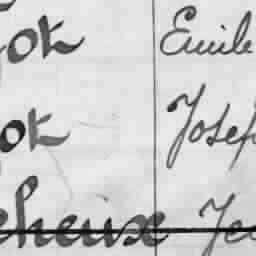 ok Emile
ok Josep
cheux Je